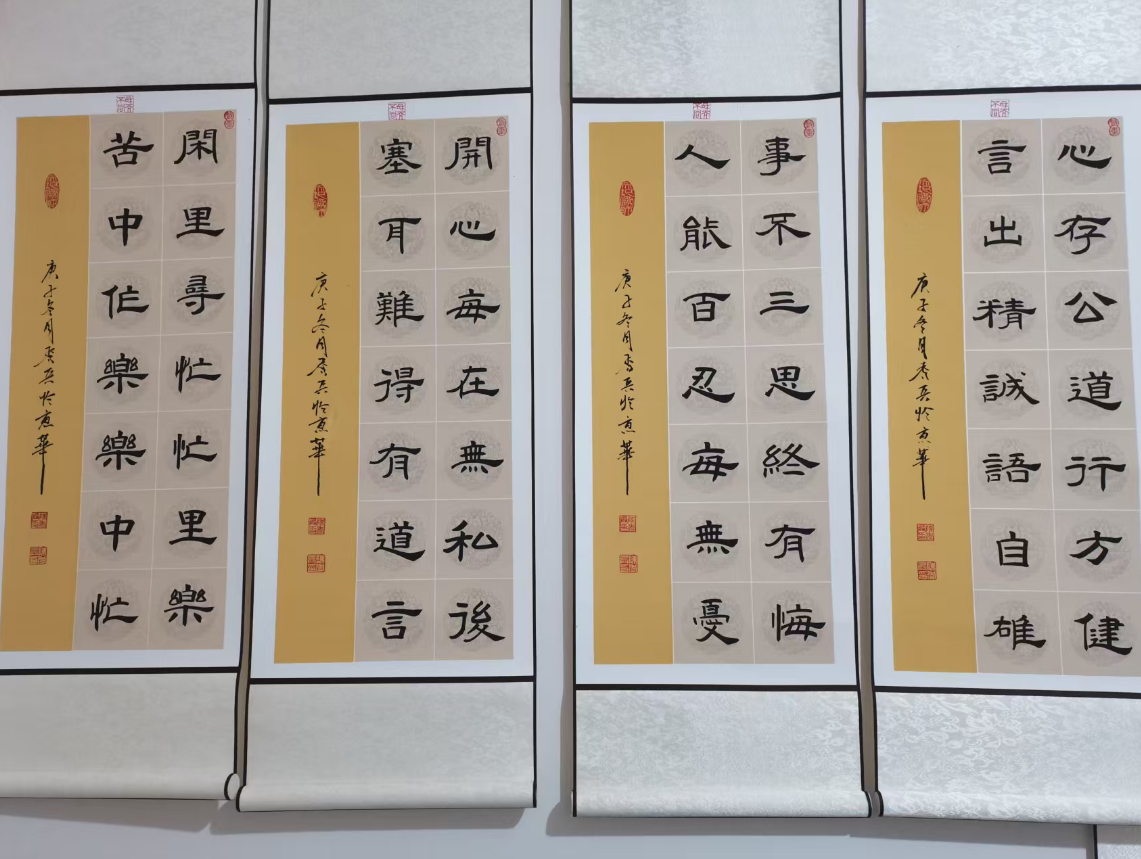 心存公道行方健
言出精誠語自雄
庚子冬月兵於京華
事不三思終有悔
人能百忍每無憂
庚子冬月兵於京華
開心每在無私後
塞耳難得有道言
庚子冬月兵於京華
閑里尋忙忙里樂
苦中作樂樂中忙
庚子冬月兵於京華